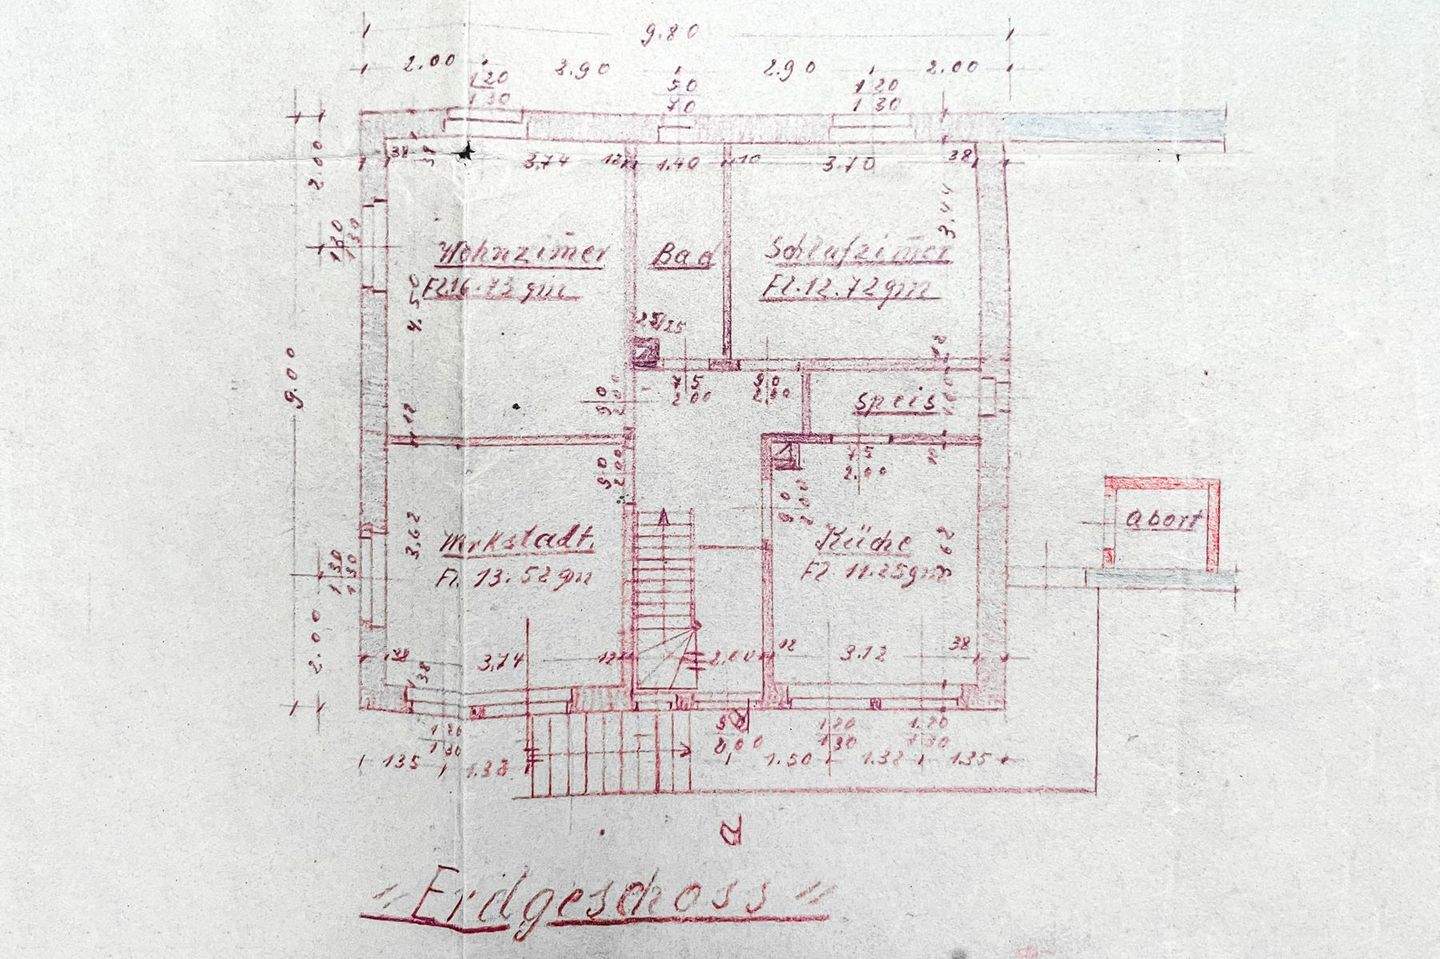 9.80
2.00 2.90 2.90 2.00
1 20
1 30
50
70
1 20
1 30
38 3.74 12 1.40 10 3.70 38
2.00
3.44
Wohnzimer
Fl.16.73 qm
Bad
Schlafzimer
Fl.12.72 qm
1 30
1 30
4.50
25/25
9.00
75
2.00
90
2.00
90
2.00
Speis
1.00
12
12
90
2.00
75
2.00
90
2.00
3,62
Werkstadt.
Fl. 13.52 qm
Küche
Fl. 11.25 qm
abort
1 30
1 30
2.00
38 3,74 12 2.00 12 3.12 38
38
1 20
1 30
90
2,00
1 20
1 30
1.20
1 30
135 1.32 1.50 1.32 1.35
a
"Erdgeschoss"